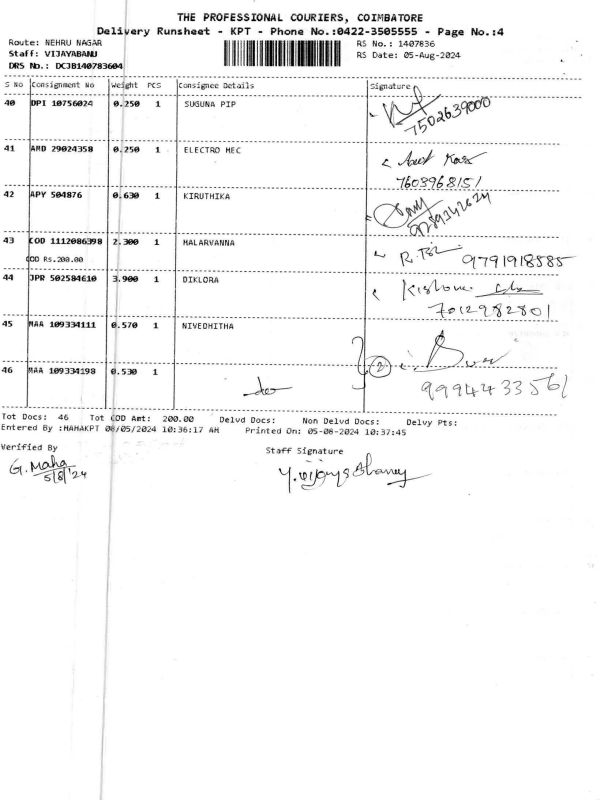 THE PROFESSIONAL COURIERS, COIMBATORE
Delivery Runsheet - KPT - Phone No.:0422-3505555 - Page No.:4
Route: NEHRU NAGAR RS No.: 1407836
Staff: VIJAYABANU RS Date: 05-Aug-2024
DRS No.: DCJB140783604
S No Consignment No Weight PCS Consignee Details Signature
40 DPI 10756024 0.250 1 SUGUNA PIP
7502639000
41 AMD 29024358 0.250 1 ELECTRO MEC
7603968151
42 APY 504876 0.630 1 KIRUTHIKA
43 COD 1112086398 2.300 1 MALARVANNA
COD Rs.200.00 R. 9791918585
44 JPR 502584610 3.900 1 DIKLORA Kishore
7012982801
45 MAA 109334111 0.570 1 NIVEDHITHA
46 MAA 109334198 0.530 1 2
9994433561
Tot Docs: 46 Tot COD Amt: 200.00 Delvd Docs: Non Delvd Docs: Delvy Pts:
Entered By :MAHAKPT 08/05/2024 10:36:17 AM Printed On: 05-08-2024 10:37:45
Verified By Staff Signature
G. Maha
5/8/'24